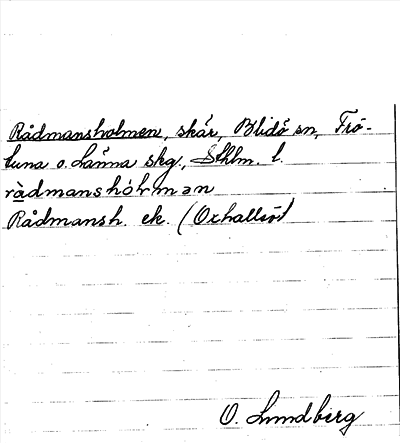 Rådmansholmen, skär, Blidö sn, Frö-
tuna o. Länna skg., Sthlm. l.
rådmanshólmən
Rådmansh. ek. (Oxhalsö)
O. Lundberg